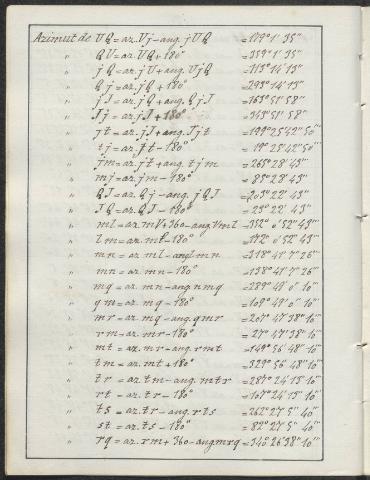 Azimut de UQ = az. Uj - ang. jUQ = 179° 1' 35"
" QU = az. UQ + 180° = 359° 1' 35"
" jQ = az. jU + ang. UjQ = 113° 14' 13"
" Qj = az. jQ + 180° = 293° 14' 13"
" jJ = az. jQ + ang. QjJ = 163° 51' 58"
" Jj = az. jJ + 180° = 343° 51' 58"
" jt = az. jJ + ang. Jjt = 199° 25' 42" 50'''
" tj = az. jt - 180° = 19° 25' 42" 50'''
" jm = az. jt + ang. tjm = 265° 28' 43"
" mj = az. jm - 180° = 85° 28' 43"
" QJ = az. Qj - ang. jQJ = 203° 22' 43"
" JQ = az. QJ - 180° = 23° 22' 43"
" ml = az. mV + 360 - ang Vml = 352° 0' 52" 43'''
" lm = az. ml - 180° = 172° 0' 52" 43'''
" mn = az. ml - ang lmn = 318° 41' 7" 26'''
" mn = az. mn - 180° = 138° 41' 7" 26'''
" mq = az. mn - ang. nmq = 289° 49' 0" 10'''
" qm = az. mq - 180° = 109° 49' 0" 10'''
" mr = az. mq - ang. qmr = 207° 47' 38" 10'''
" rm = az. mr - 180° = 27° 47' 38" 10'''
" mt = az. mr - ang. rmt = 149° 56' 48" 10'''
" tm = az. mt + 180° = 329° 56' 48" 10'''
" tr = az. tm - ang. mtr = 287° 24' 13" 10'''
" rt = az. tr - 180° = 107° 24' 13" 10'''
" ts = az. tr - ang. rts = 262° 27' 5" 40'''
" st = az. ts - 180° = 82° 27' 5" 40'''
" rq = az. rm + 360 - ang mrq = 340° 26' 38" 10'''